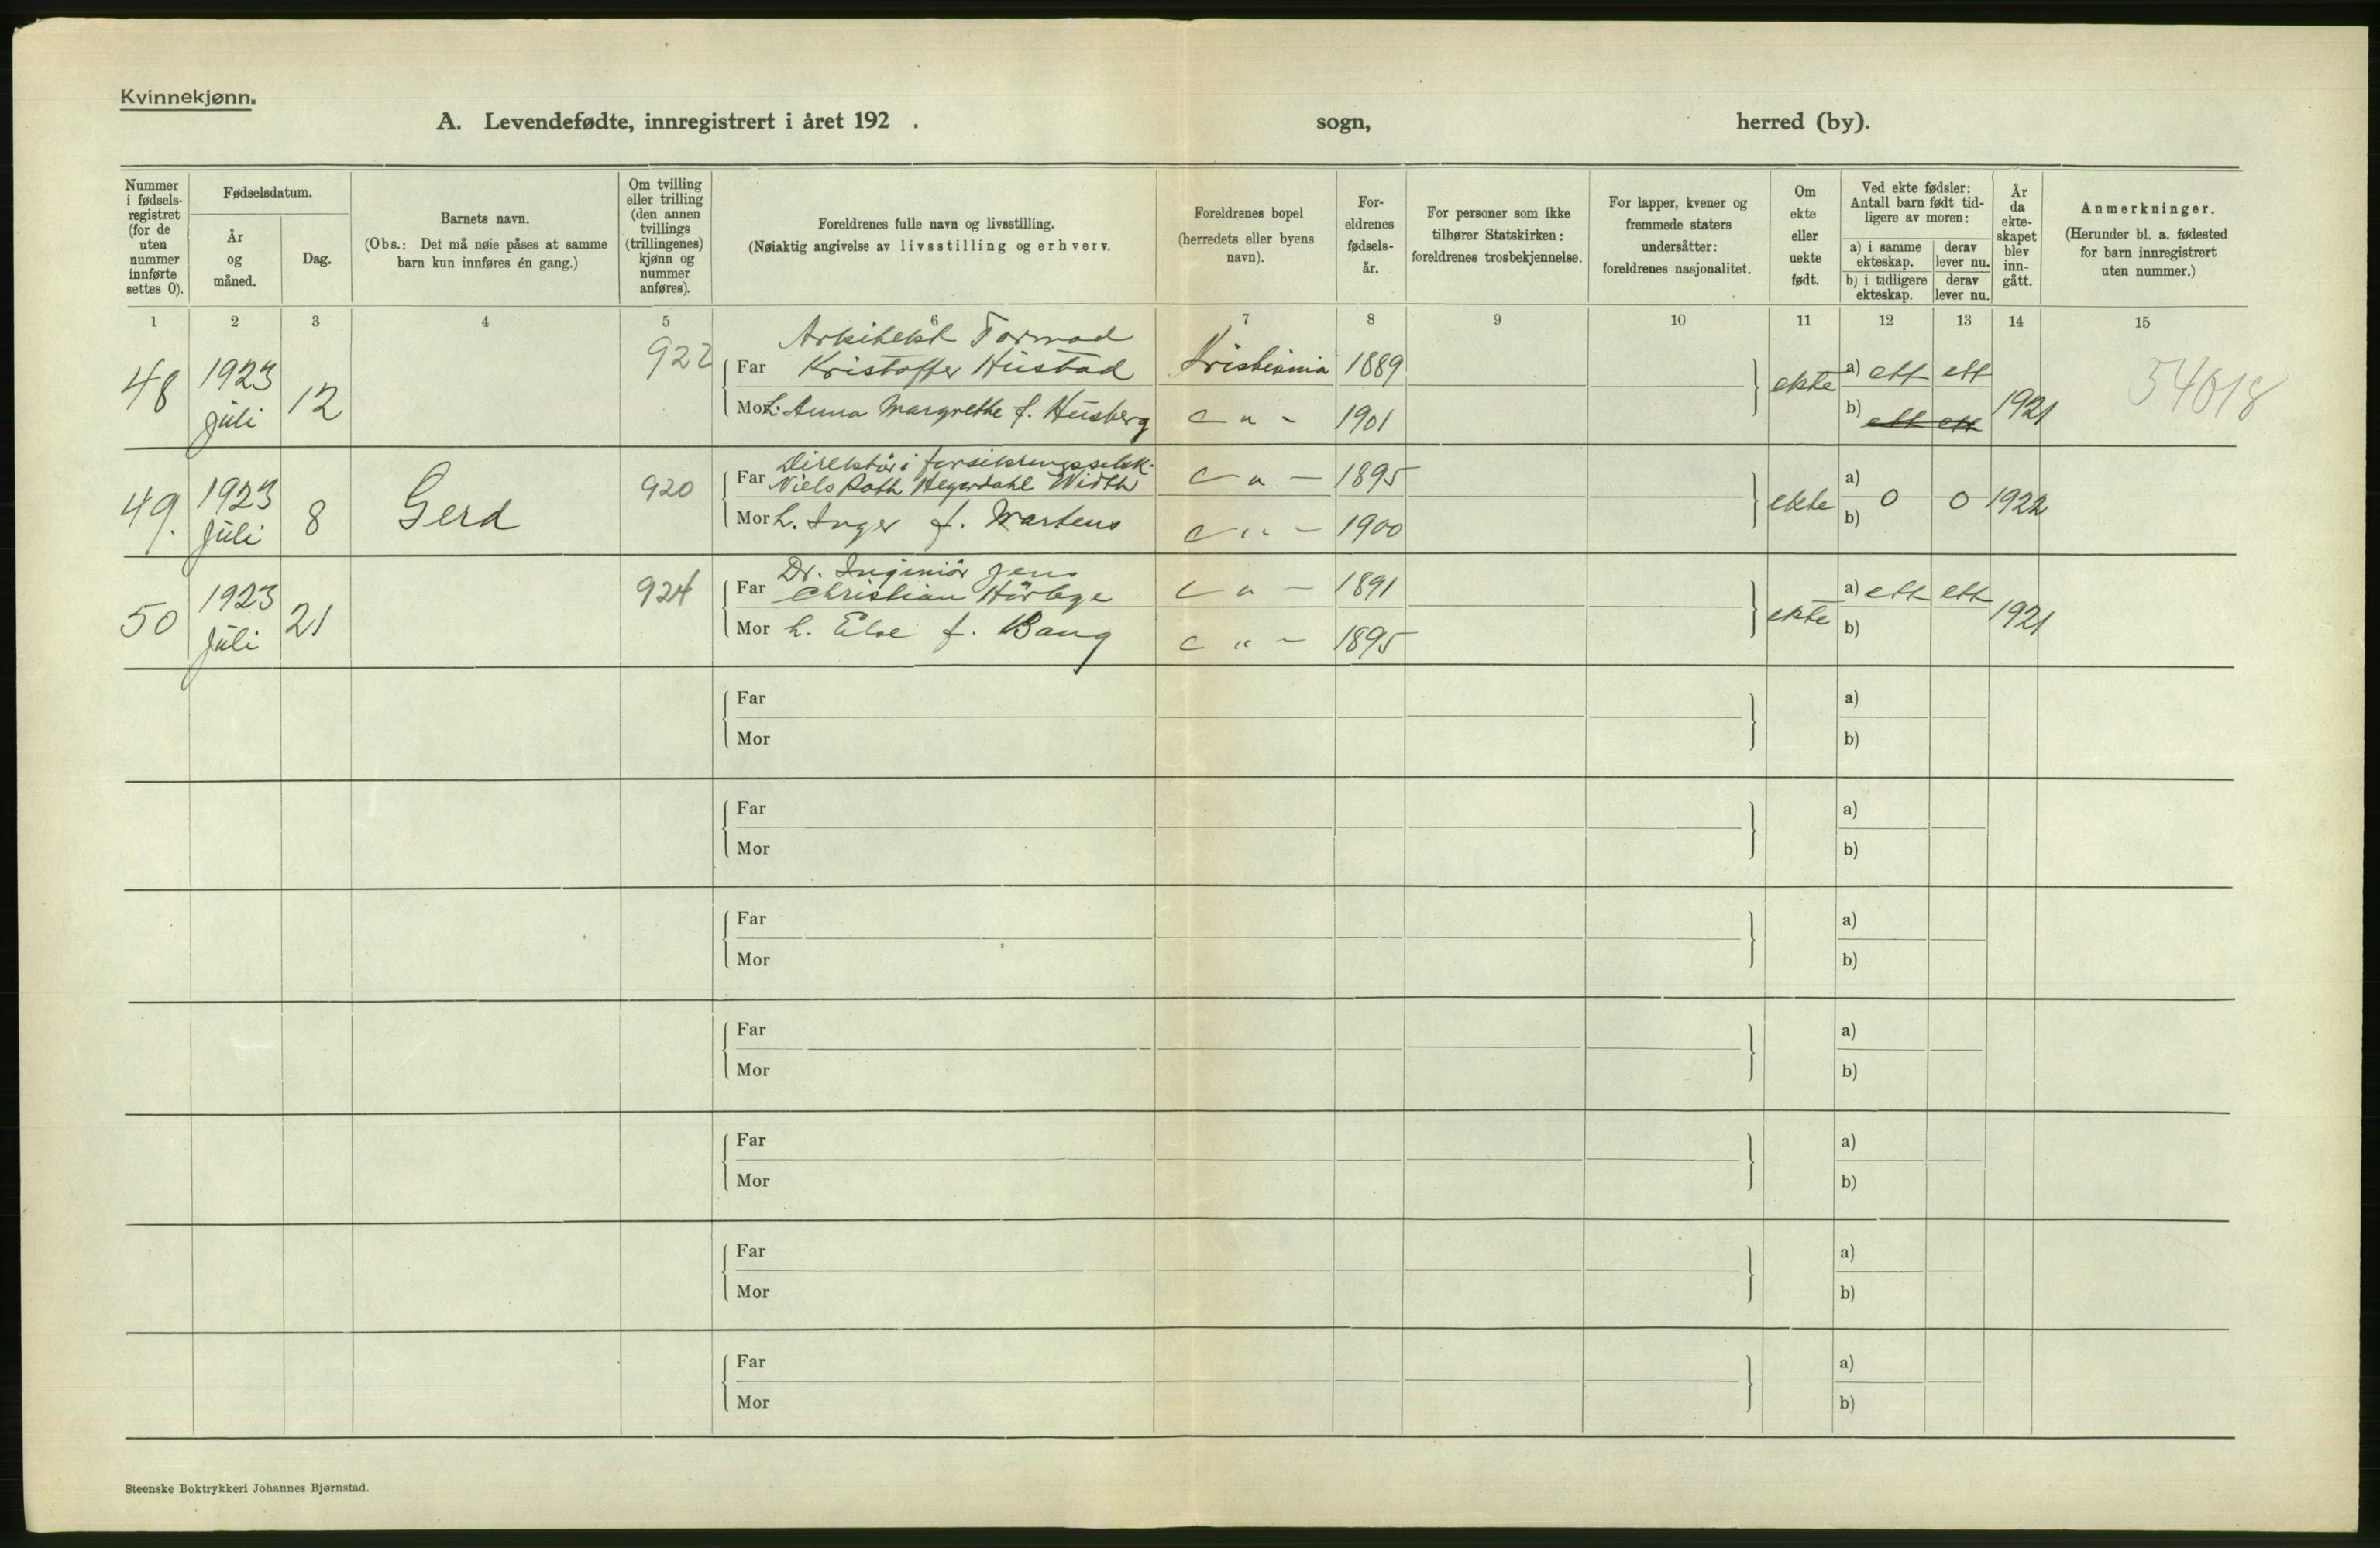 Kvinnekjønn.
A. Levendefødte, innregistrert i året 192 . sogn, herred (by).
Nummer i fødselsregistret (for de uten nummer innførte settes 0).
Fødselsdatum.
År og måned.
Dag.
Barnets navn.
(Obs.: Det må nøie påses at samme barn kun innføres én gang.)
Om tvilling eller trilling (den annen tvillings (trillingenes) kjønn og nummer anføres).
Foreldrenes fulle navn og livsstilling.
(Nøiaktig angivelse av livsstilling og erhverv.
Foreldrenes bopel (herredets eller byens navn).
Foreldrenes fødselsår.
For personer som ikke tilhører Statskirken: foreldrenes trosbekjennelse.
For lapper, kvener og fremmede staters undersåtter: foreldrenes nasjonalitet.
Om ekte eller uekte født.
Ved ekte fødsler: Antall barn født tidligere av moren:
a) i samme ekteskap. derav lever nu.
b) i tidligere ekteskap. derav lever nu.
År da ekteskapet blev inngått.
Anmerkninger.
(Herunder bl. a. fødested for barn innregistrert uten nummer.)
1 2 3 4 5 6 7 8 9 10 11 12 13 14 15
48 1923 Juli 12 922
Arkitekt Tormod
Far Kristoffer Hustad Kristiania 1889 ekte a) ett ett 1921 54618
Mor h. Anna Margrethe f. Husberg — " — 1901 b) ett ett
49. 1923 Juli 8 Gerd 920
Direktör i forsikringsselsk.
Far Niels Roth Hegerdahl Width — " — 1895 ekte a) 0 0 1922
Mor h. Inger f. Martens — " — 1900 b)
50 1923 Juli 21 924
Dr. Ingeniör Jens
Far Christian Hörbye — " — 1891 ekte a) ett ett 1921
Mor h. Else f. Bang — " — 1895 b)
Far a)
Mor b)
Far a)
Mor b)
Far a)
Mor b)
Far a)
Mor b)
Far a)
Mor b)
Far a)
Mor b)
Far a)
Mor b)
Steenske Boktrykkeri Johannes Bjørnstad.